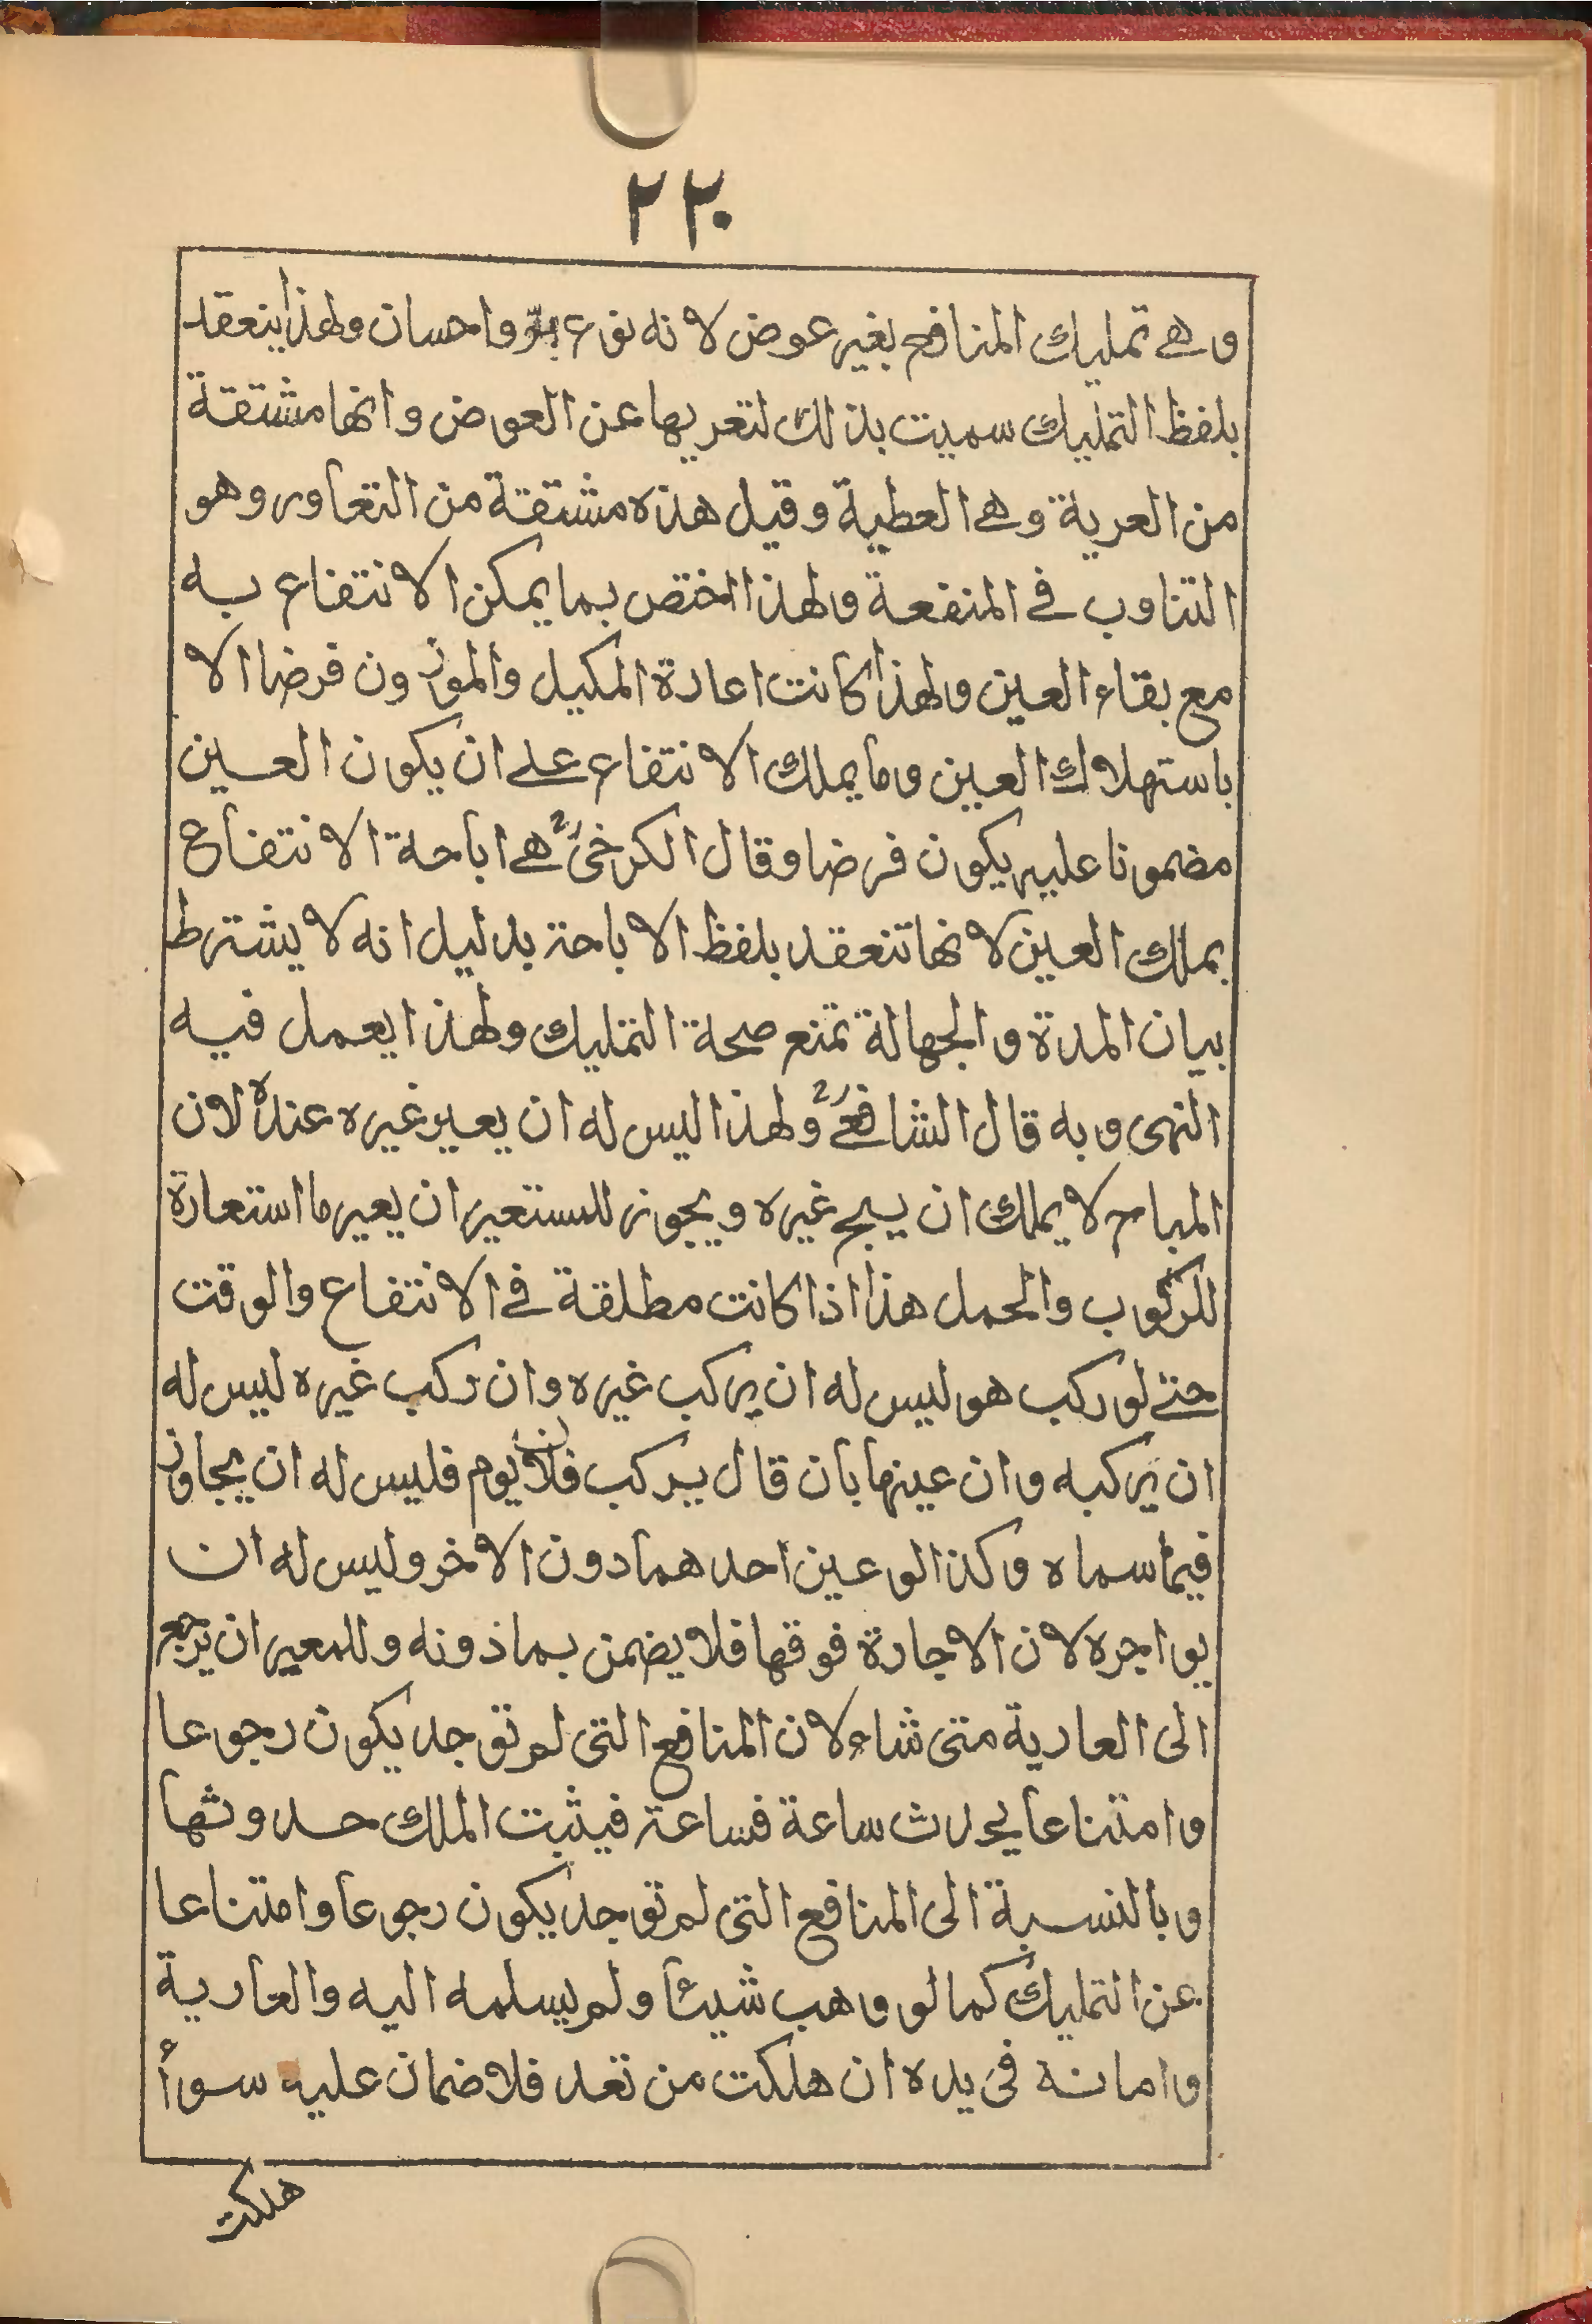 ٢٢٠
وهي تمليك المنافع بغير عوض لانه نوع بر واحسان ولهذا ينعقد
بلفظ التمليك سميت بذلك لتعريها عن العوض وانها مشتقة
من العرية وهي العطية وقيل هذه مشتقة من التعاور وهو
التناوب في المنفعة ولهذا اختص بما يمكن الانتفاع به
مع بقاء العين ولهذا كانت اعارة المكيل والموزون قرضا الا
باستهلاك العين وما يملك الانتفاع على ان يكون العين
مضمونا عليه يكون قرضا وقال الكرخيؒ هي اباحة الانتفاع
بملك العين لانها تنعقد بلفظ الاباحة بدليل انه لا يشترط
بيان المدة والجهالة تمنع صحة التمليك ولهذا يعمل فيه
النهى وبه قال الشافعيؒ ولهذا ليس له ان يعير غيره عنده لان
المباح لا يملك ان يبيح غيره ويجوز للمستعير ان يعير ما استعارة
للركوب والحمل هذا اذا كانت مطلقة في الانتفاع والوقت
حتى لو ركب هو ليس له ان يركب غيره وان ركب غيره ليس له
ان يركبه وان عينها بان قال يركب فلان يوم فليس له ان يجاوز
فيما سماه وكذا لو عين احدهما دون الاخر وليس له ان
يواجره لان الاجارة فوقها فلا يضمن بماذونه وللمعير ان يرجع
الى العارية متى شاء لان المنافع التى لم توجد يكون رجوعا
وامتناعا يحدث ساعة فساعة فيثبت الملك حدوثها
وبالنسبة الى المنافع التى لم توجد يكون رجوعا وامتناعا
عن التمليك كما لو وهب شيئا ولم يسلمه اليه والعارية
وامانة فى يده ان هلكت من تعد فلا ضمان عليه سوأ
هلكت